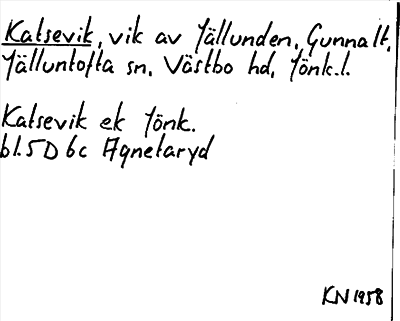 Katsevik, vik av Jällunden, Gunnalt,
Jälluntofta sn, Västbo hd, Jönk.l.
Katsevik ek Jönk.
bl.5D6c Agnetaryd
KN 1958